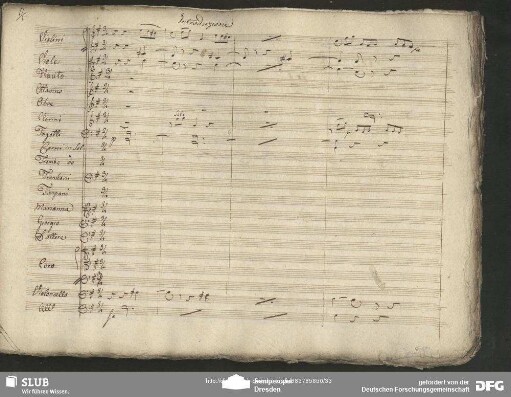 Introduzione
Violini
Viole
Flauto
Ottavino
Oboe
Clarini
Fagotti
Corni in Sol
Trombe in
Tromboni
Timpani
Marianna
Giorgio
Coro
Violoncello
SLUB
Wir führen Wissen.
Dresden
gefördert von der
Deutschen Forschungsgemeinschaft
DFG